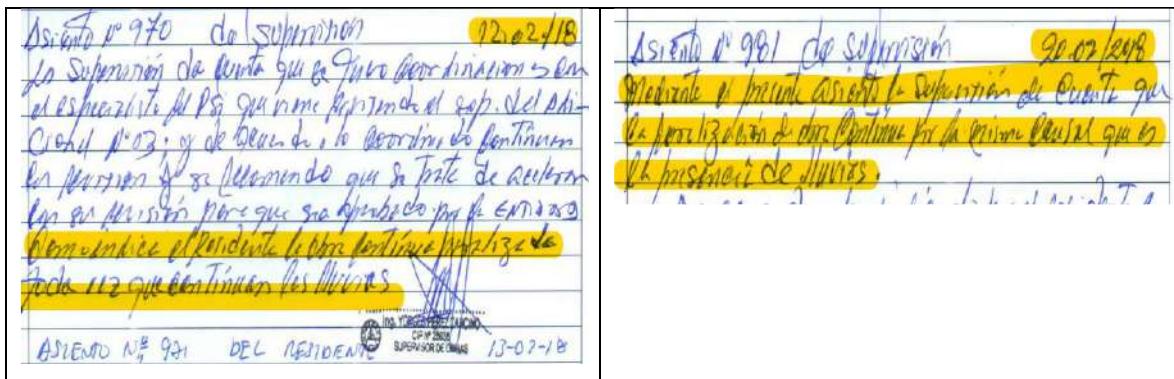 Asiento Nº 970 de Supervisión 12.02/18
La Supervisión da cuenta que se tuvo coordinaciones con
el especialista del PSI que viene revisando el exp. del Adi-
cional Nº 03; y de acuerdo a lo coordinado continúan
en revisión y se recomendo que se trate de acelerar
con su revisión para que sea aprobado por la ENTIDAD
Como indica el Residente la obra continua paralizada
toda vez que continuan las lluvias
Ing. YORGES PEREZ
CIP Nº
SUPERVISOR DE OBRAS
ASIENTO Nº 971 DEL RESIDENTE 13-02-18
Asiento Nº 981 de Supervisión 20.02/2018
Mediante el presente asiento la Supervisión da cuenta que
la paralización de obra continua por la misma causal que es
la presencia de lluvias.